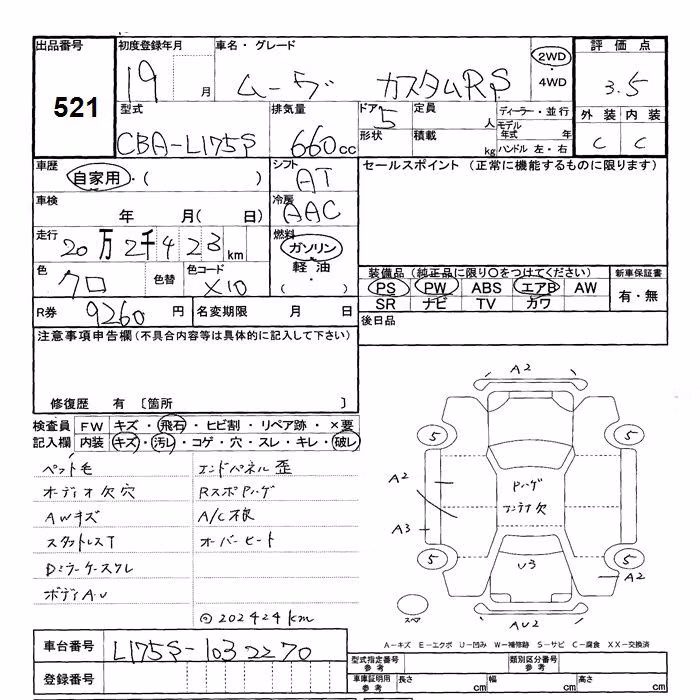 出品番号 初度登録年月 車名・グレード 評価点
521
19 月 ムーヴ カスタムRS 2WD・4WD 3.5
型式 排気量 ドア 定員 ディーラー・並行 外装 内装
CBA-L175S 660cc 5 人 モデル年式 年 C C
形状 積載 kg ハンドル 左・右
車歴 シフト セールスポイント (正常に機能するものに限ります)
自家用・( ) AT
車検 冷房
年 月( 日) AAC
走行 燃料
20万2千423km ガソリン・軽油・( )
色 色替 色コード 装備品 (純正品に限り○をつけてください) 新車保証書
クロ X10 PS PW ABS エアB AW 有・無
SR ナビ TV カワ
R券 9260円 名変期限 月 日 後日品
注意事項申告欄(不具合内容等は具体的に記入して下さい)
修復歴 有 〔箇所 〕
検査員 FW キズ・飛石・ヒビ割・リペア跡・×要
記入欄 内装 キズ・汚レ・コゲ・穴・スレ・キレ・破レ
ペット毛 エンドパネル歪
オーディオ欠穴 Rスポハゲ
AWキズ A/C不良
スタットレスT オーバーヒート
Dミラーケーススレ
ボディA・U
◎202424km
A2
5 5
A2 Pハゲ
アンテナ欠
A3
5 U3 5
A2
スペア AU2
A-キズ E-エクボ U-凹み W-補修跡 S-サビ C-腐食 XX-交換済
車台番号 L175S-1032270
登録番号
型式指定番号 参考 類別区分番号 参考
車庫証明用 参考 長さ cm 幅 cm 高さ cm